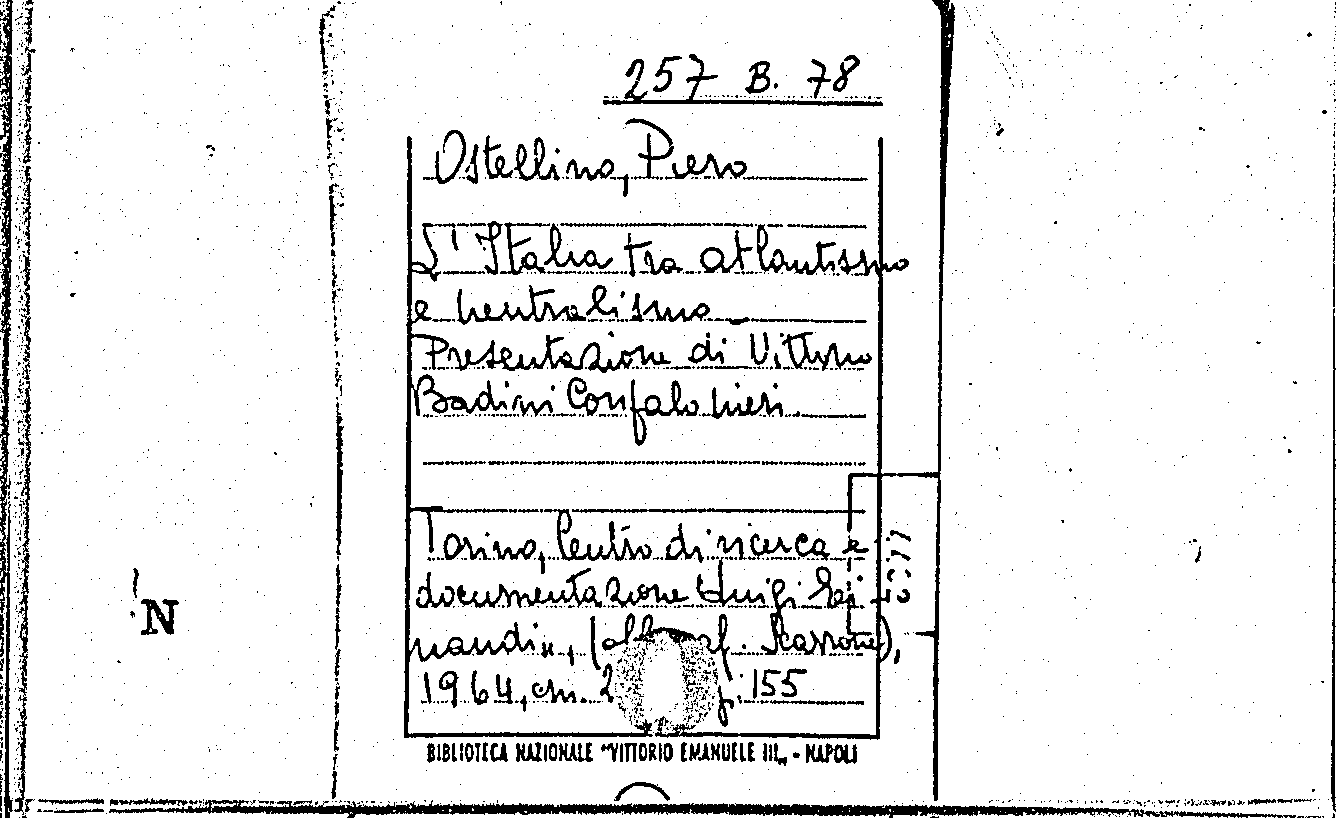 257 B. 78
Ostellino, Piero
L'Italia tra atlantismo
e neutralismo
Presentazione di Vittorio
Badini Confalonieri.
Torino, Centro di ricerca e
documentazione Luigi Ei
naudi, Scarrone),
1964, cm. 2 p. 155
N
BIBLIOTECA NAZIONALE "VITTORIO EMANUELE III„ - NAPOLI